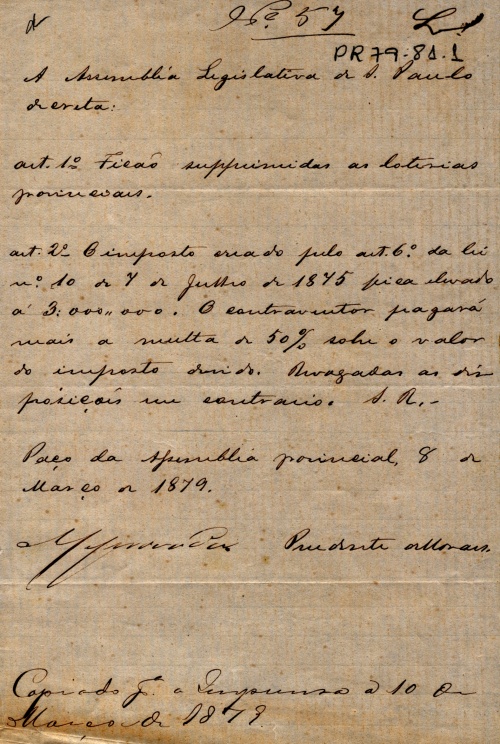 Nº 57
PR 79-81.1
A Assemblia Legislativa de S. Paulo
decreta:
art. 1º Ficaõ supprimidas as loterias
provinciaes.
art. 2º O imposto creado pelo art. 6º da lei
nº 10 de 7 de Julho de 1875 fica elevado
á 3:000,,000. O contraventor pagará
mais a multa de 50% sobre o valor
do imposto devido. Revogadas as dis
posiçoẽs em contrario. S. R.-
Paço da Assemblia provincial, 8 de
Março de 1879.
Prudente de Moraes.
Copiado pª a Imprensa à 10 de
Março de 1879.